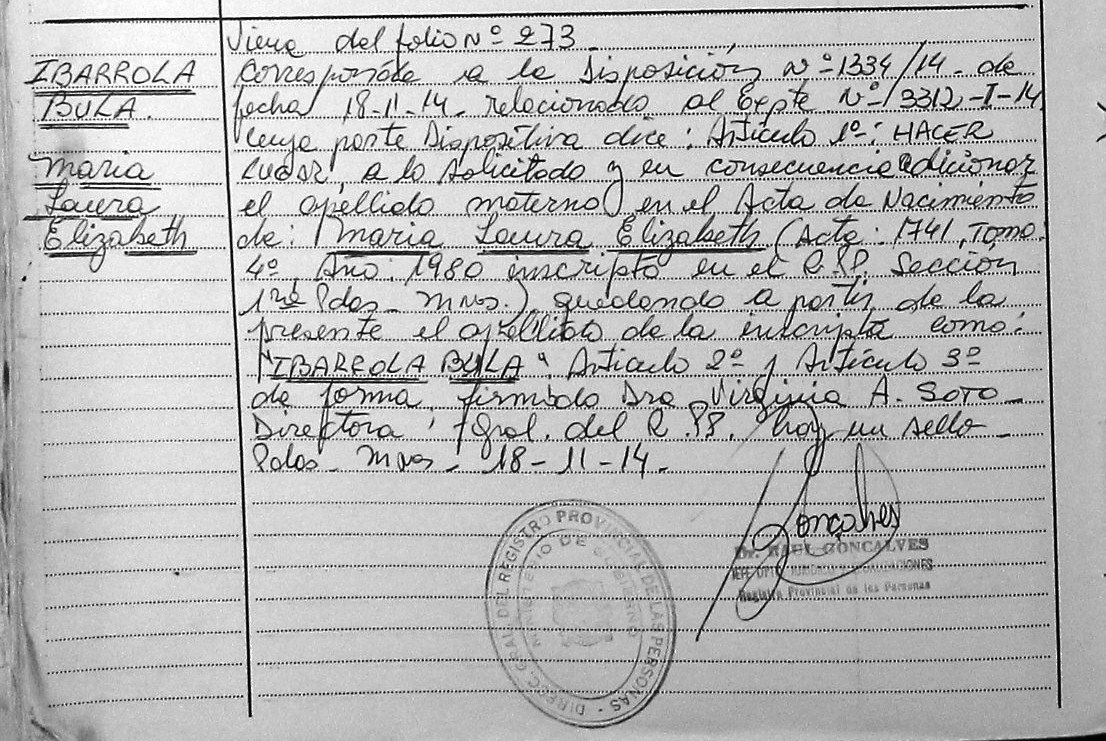 Viene del folio Nº 273.
IBARROLA
BULA.
Maria
Laura
Elizabeth
Corresponde a la Disposición Nº 1334/14 de
fecha 18-11-14 relacionado al Expte Nº 3312-I-14
cuya parte Dispositiva dice: Artículo 1º: HACER
LUGAR, a lo solicitado y en consecuencia adicionar
el apellido materno en el Acta de Nacimiento
de: Maria Laura Elizabeth (Acta: 1741, Tomo
4º Año 1980 inscripta en el R.PP. Sección
1ra Pdas. Mnes.) quedando a partir de la
presente el apellido de la inscripta como:
"IBARROLA BULA" Artículo 2º y Artículo 3º
de forma, firmado Dra Virginia A. SOTO
Directora Gral. del R.PP. hay un sello
Pdas. Mnes. 18-11-14.
Gonçalves
Dr. RAUL GONCALVES
JEFE DPTO JURIDICO Y LEGALIZACIONES
Registro Provincial de las Personas
DIREC. GRAL. DEL REGISTRO PROVINCIAL DE LAS PERSONAS
MINISTERIO DE GOBIERNO